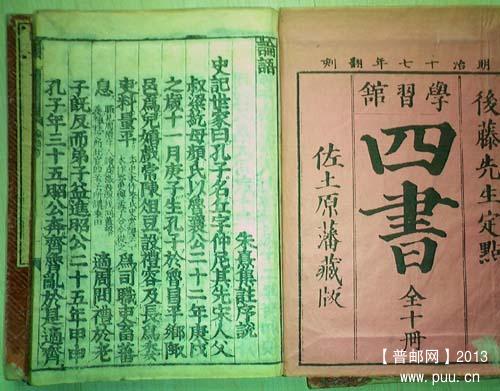 明治十七年翻刻
後藤先生定點
學習館
四書
全十冊
佐土原藩藏版
論語
朱熹集註序說
史記世家曰孔子名丘字仲尼其先宋人父
叔梁紇母顏氏以魯襄公二十二年庚戌
之歲十一月庚子生孔子於魯昌平鄉陬
邑爲兒嬉戲常陳俎豆設禮容及長爲委
吏料量平 爲司職吏畜蕃
息 適周問禮於老
子既反而弟子益進昭公二十五年甲申
孔子年三十五昭公奔齊魯亂於是適齊
【普邮网】2013
www.puu.cn